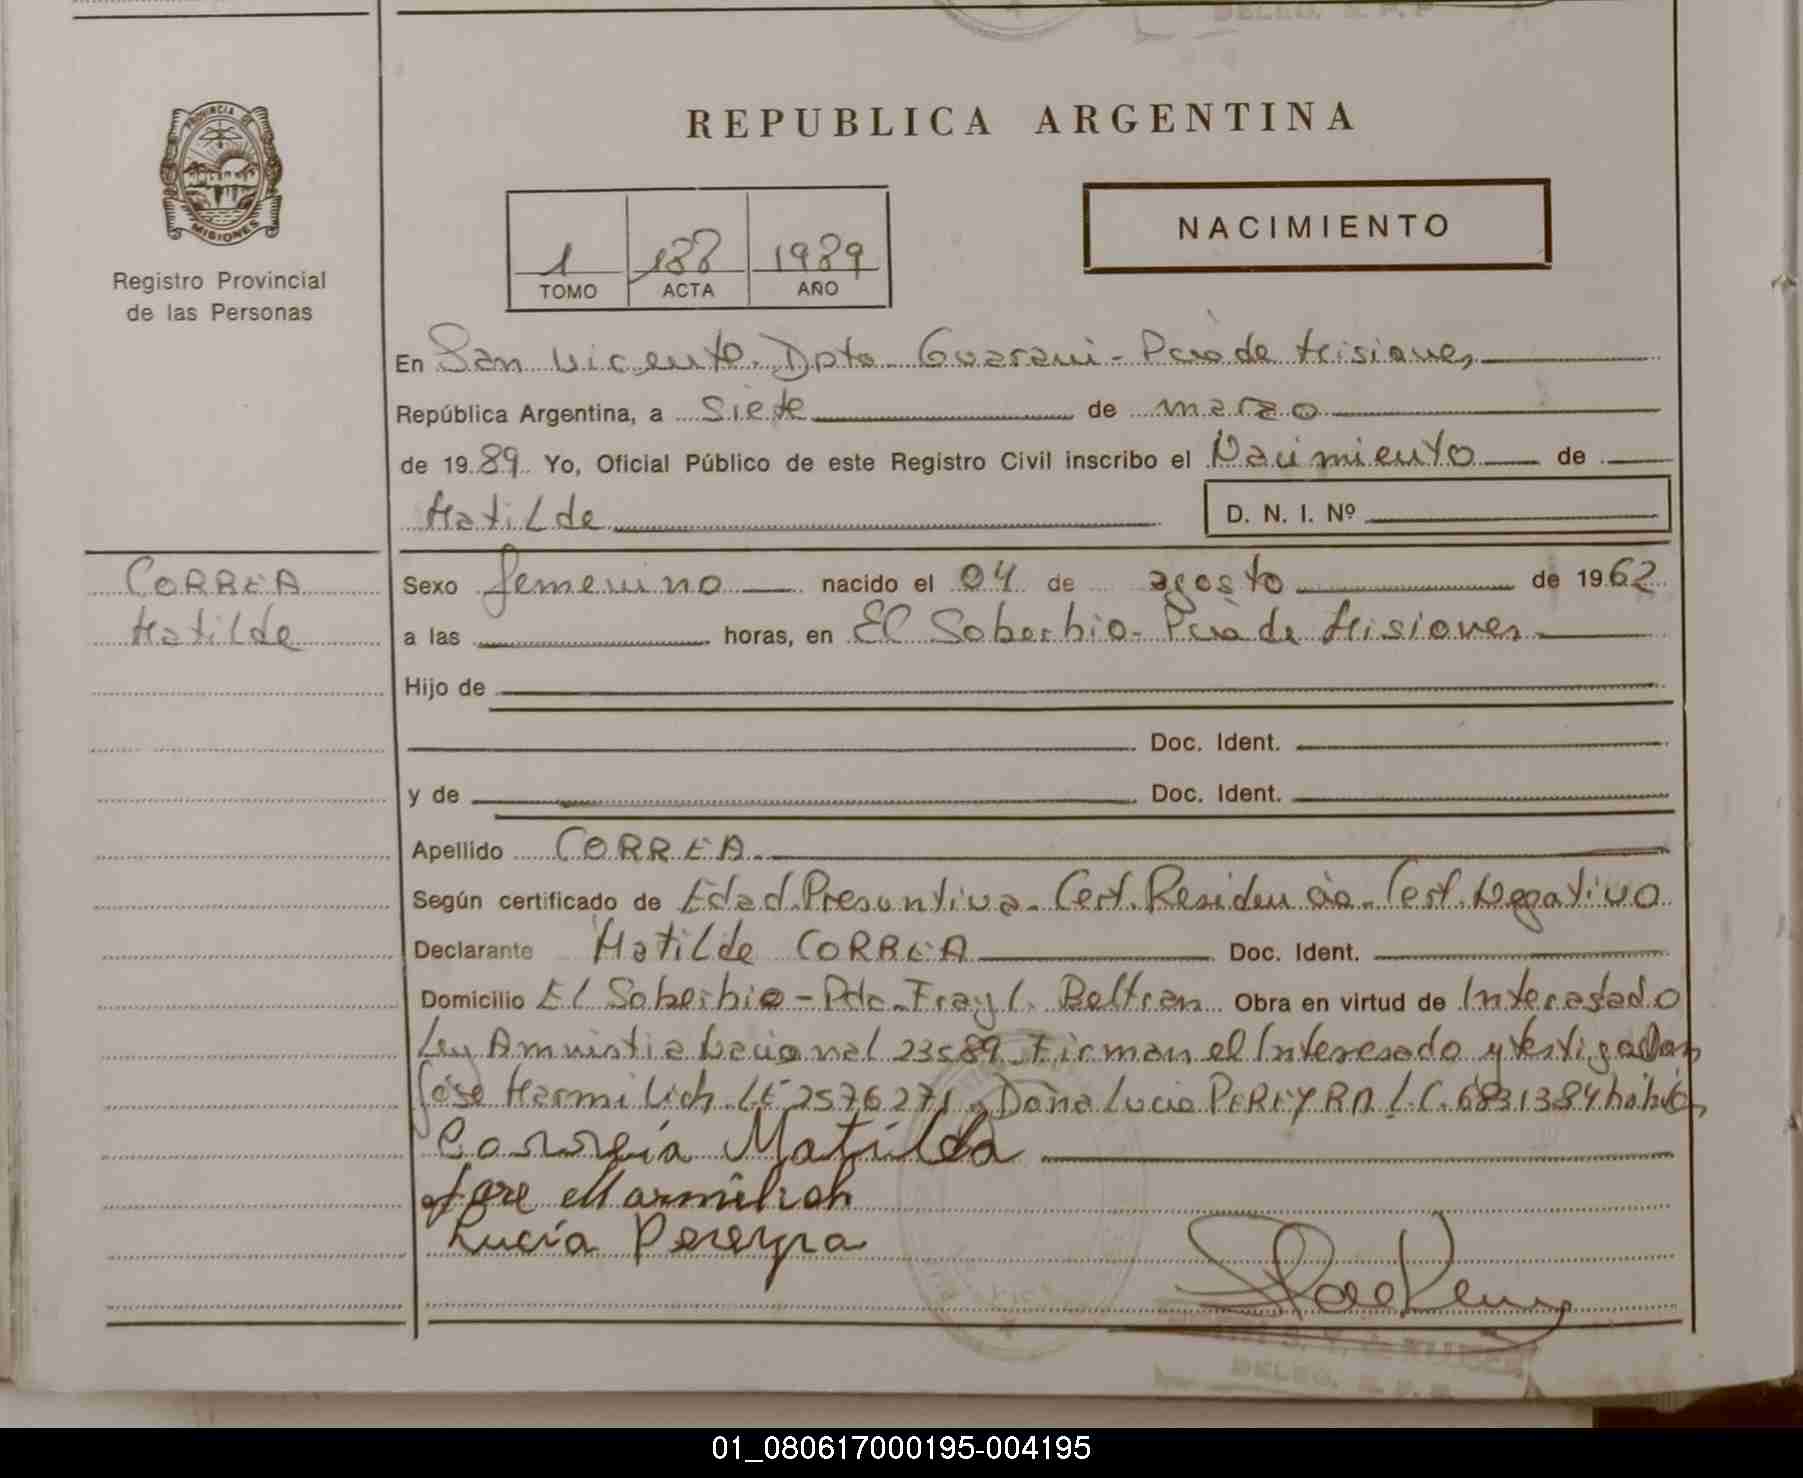 DELEG. R. P. P.
PROVINCIA DE
MISIONES
Registro Provincial
de las Personas
REPUBLICA ARGENTINA
NACIMIENTO
1 188 1989
TOMO ACTA AÑO
En San Vicente. Dpto. Guarani - Pcia de Misiones
República Argentina, a siete de marzo
de 1989 Yo, Oficial Público de este Registro Civil inscribo el Nacimiento de
Matilde
D. N. I. Nº
CORREA
Matilde
Sexo femenino nacido el 04 de agosto de 1962
a las horas, en El Soberbio - Pcia de Misiones
Hijo de
Doc. Ident.
y de Doc. Ident.
Apellido CORREA
Según certificado de Edad Presuntiva - Cert. Residencia - Cert. Negativo
Declarante Matilde CORREA Doc. Ident.
Domicilio El Soberbio - Pdo. Fray L. Beltran Obra en virtud de Interesado
Ley Amnistia Nacional 23589. Firman el Interesado y testigo Don
Jose Marmilich LE 2576271 Doña Lucia PEREYRA L.C. 6831384
Correia Matilda
Jose Marmilich
Lucía Pereyra
DELEG. R. P. P.
01_080617000195-004195